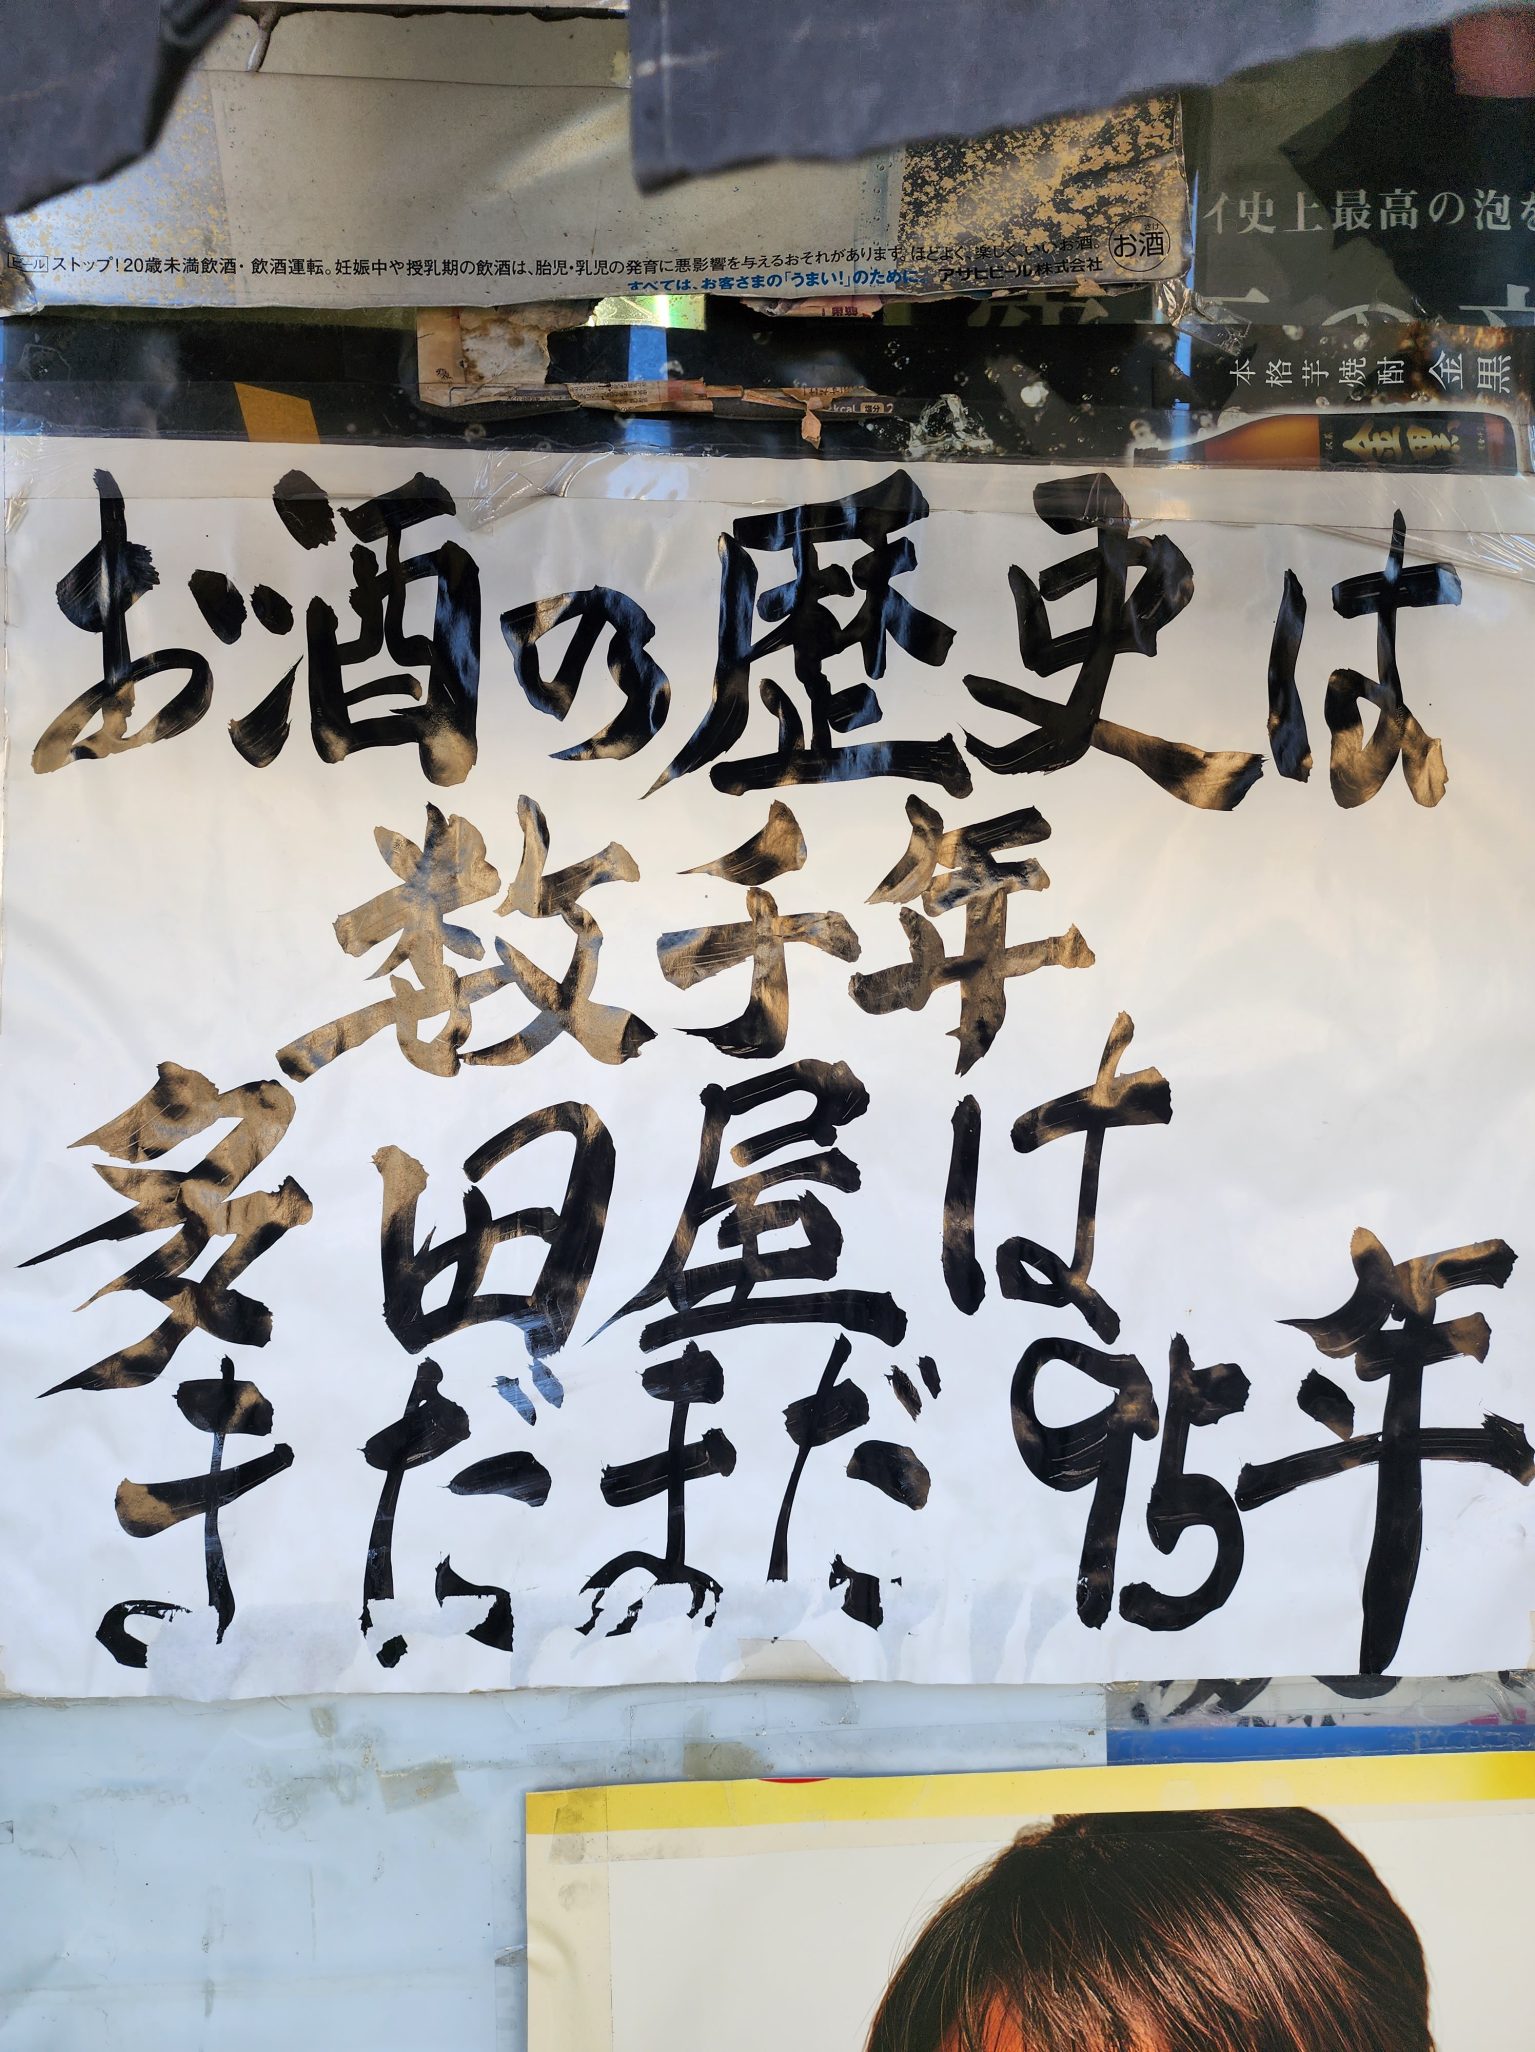 ビール ストップ!20歳未満飲酒・飲酒運転。妊娠中や授乳期の飲酒は、胎児・乳児の発育に悪影響を与えるおそれがあります。ほどよく、楽しく、いいお酒。
お酒
すべては、お客さまの「うまい!」のために。 アサヒビール株式会社
イ史上最高の泡を
本格芋焼酎 金黒
金黒
kcal 塩分 2
お酒の歴史は
数千年
多田屋は
まだまだ95年